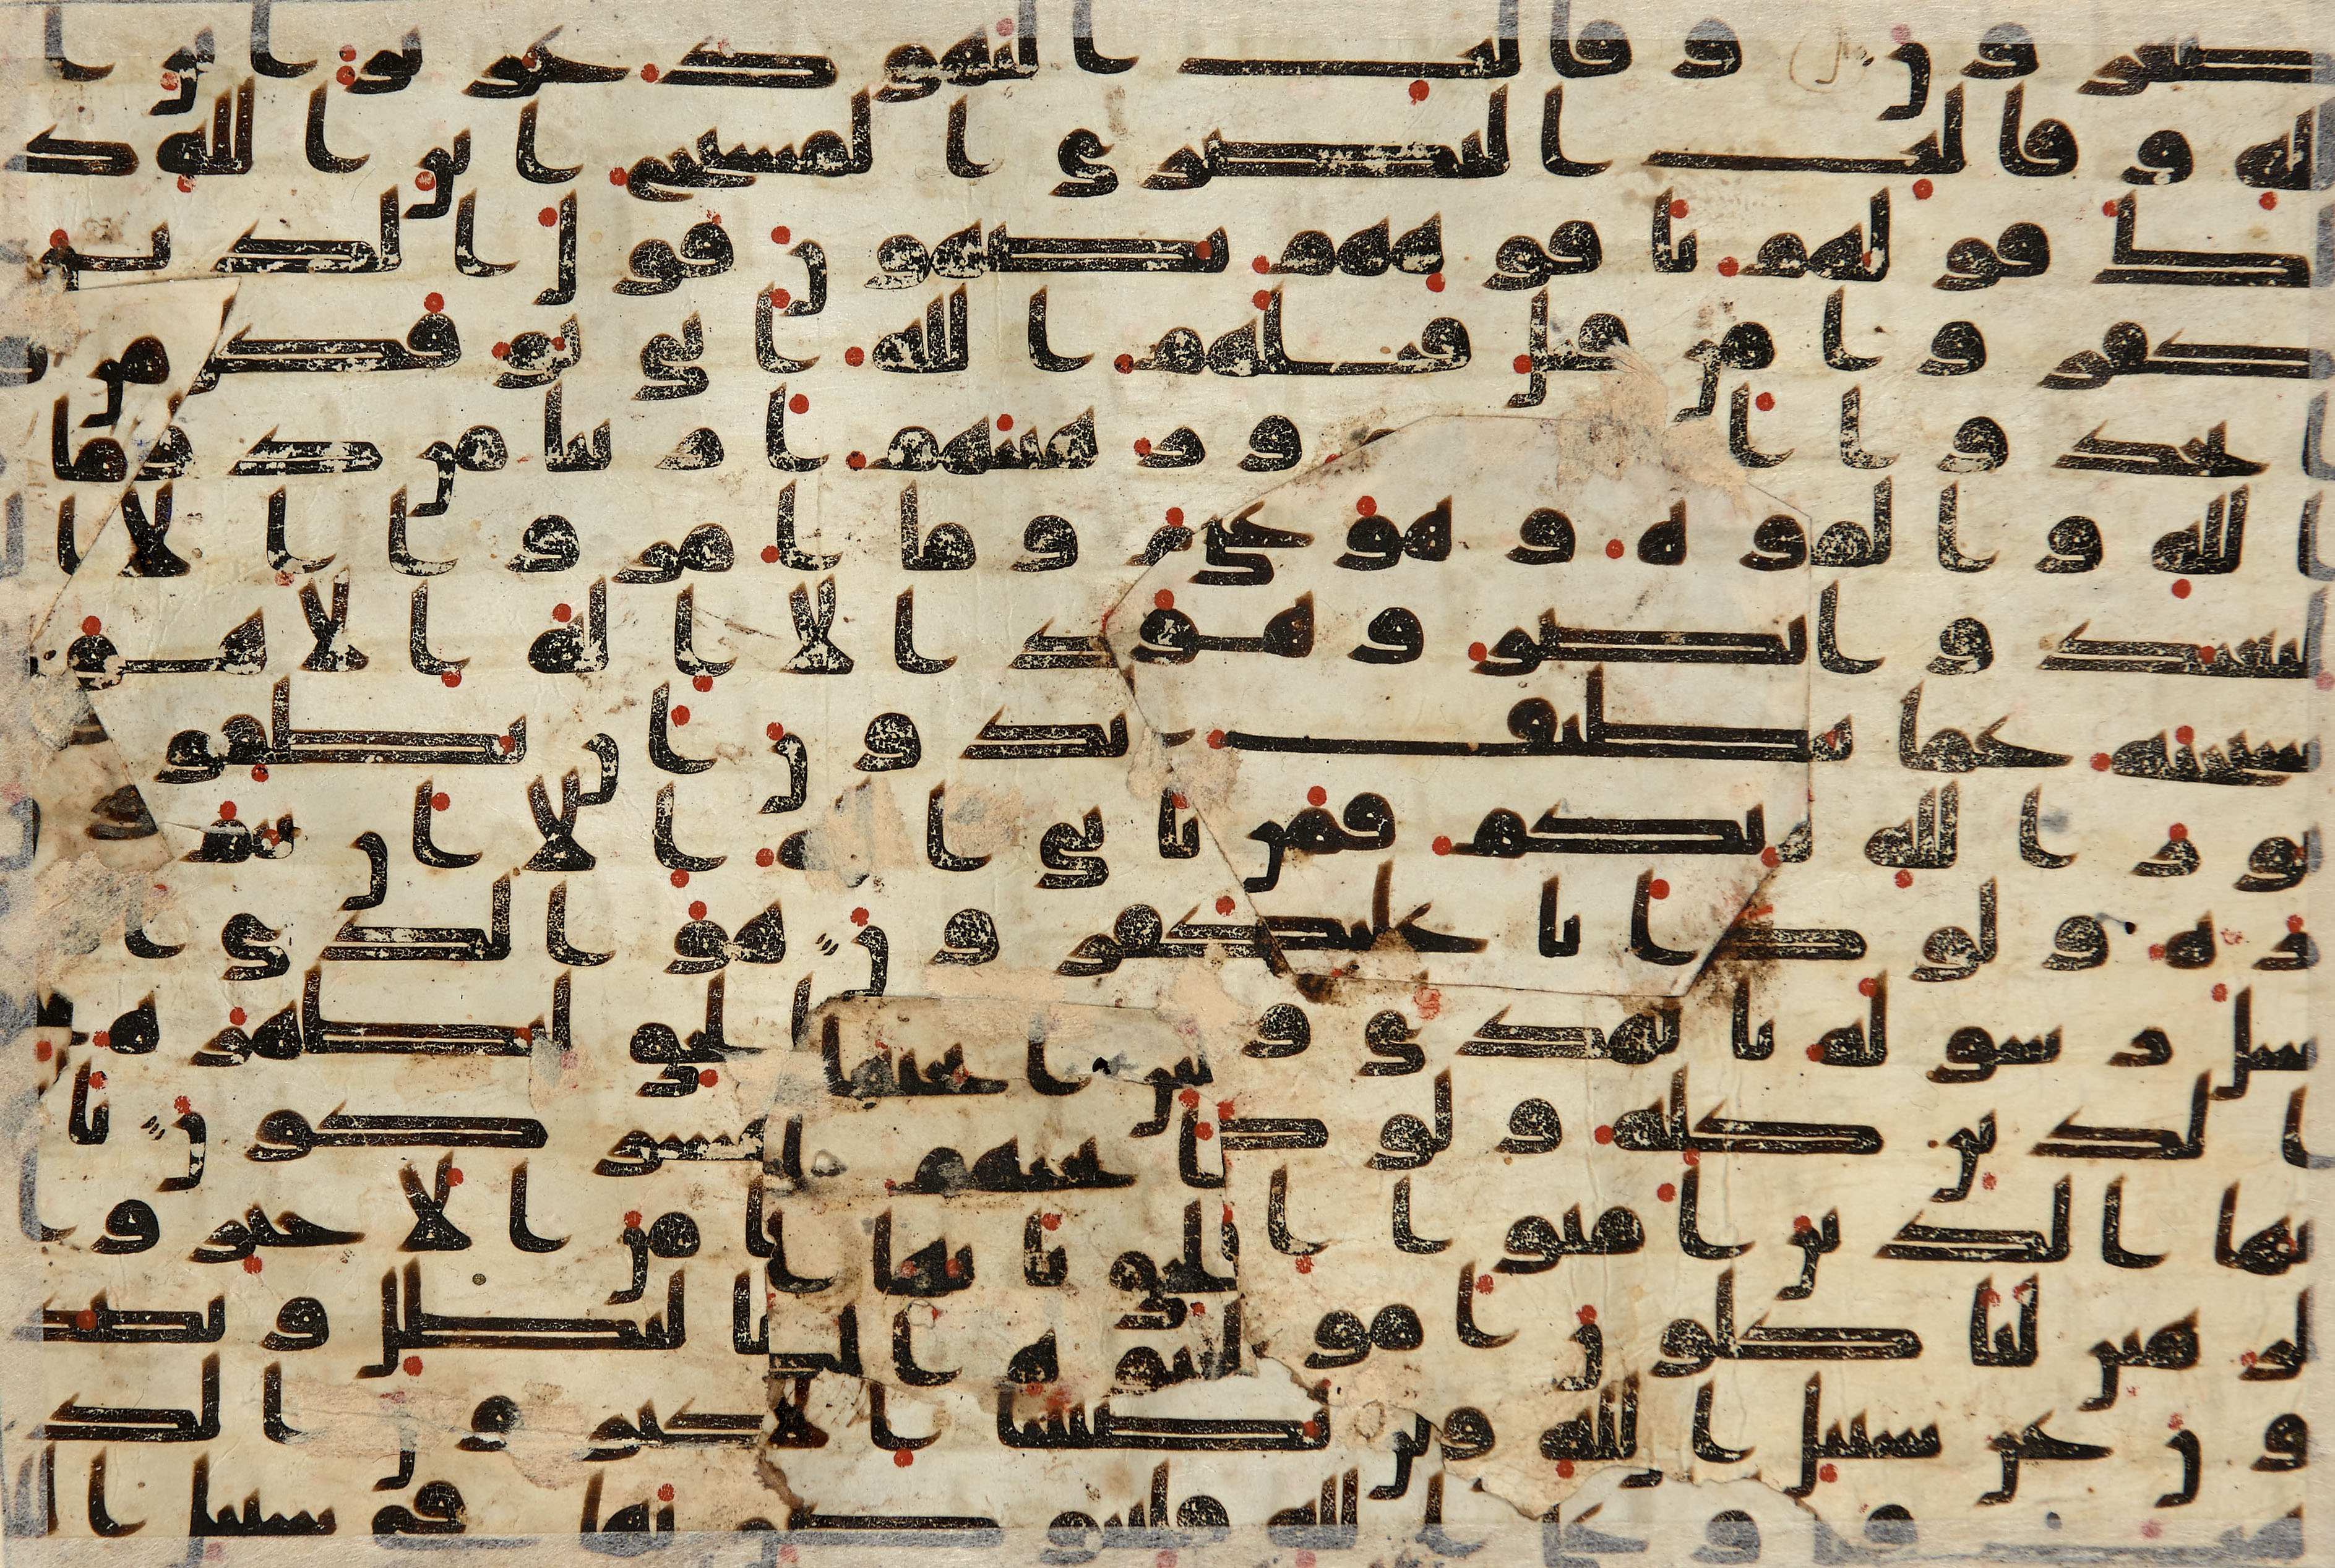 صغرون وقالت اليهود عزير ابن ا
لله وقالت النصرى المسيح ابن الله ذ
لك قولهم بافوههم يضهون قول الذين
كفروا من قبل قتلهم الله انى يوفكون
اتخذوا احبرهم ورهبنهم اربابا من دون
الله والمسيح ابن مريم وما امروا الا
ليعبدوا الها وحدا لا اله الا هو
سبحنه عما يشركون يريدون ان يطفوا
نور الله بافوههم ويابى الله الا ان يتم
نوره ولو كره الكفرون هو الذى ا
رسل رسوله بالهدى ودين الحق ليظهره
على الدين كله ولو كره المشركون يا
يها الذين امنوا ان كثيرا من الاحبار وا
لرهبن لياكلون امول الناس بالبطل ويصد
ون عن سبيل الله والذين يكنزون الذ
هب والفضة ولا ينفقونها فى سبيل ا